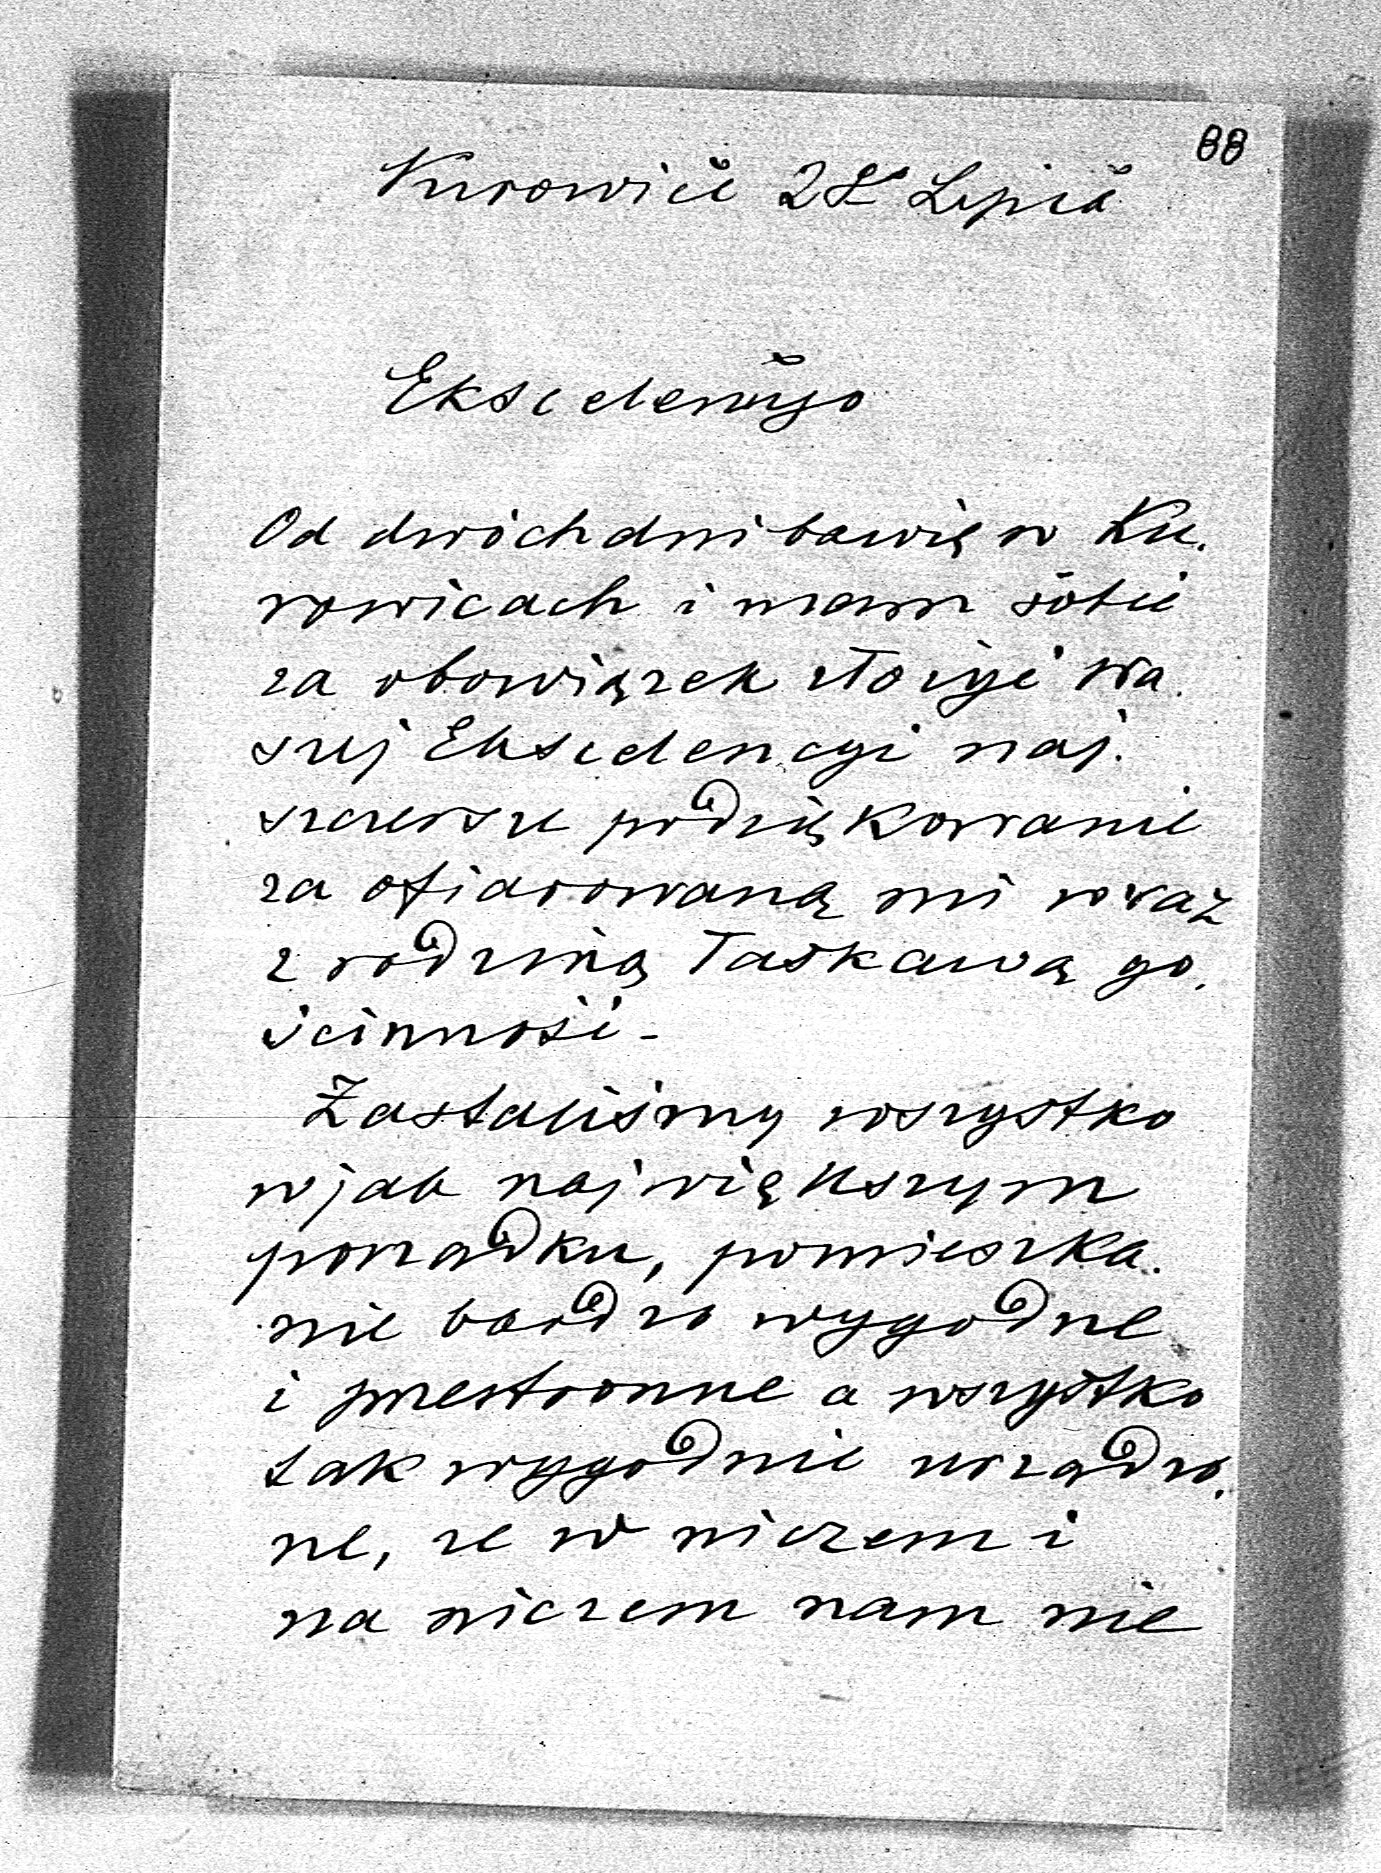 88
Kurowice 2 Lipca
Ekscelencyjo
Od dwóch dni bawię w Ku.
rowicach i mam sobie
za obowiązek złożyć Wa.
szej Ekscelencyi naj.
szczersze podziękowanie
za ofiarowaną mi wraz
z rodziną łaskawą go.
ścinność -
Zastaliśmy wszystko
w jak największym
porządku, pomieszka.
nie bardzo wygodne
i przestronne a wszystko
tak wygodnie urządzo.
ne, ze w niczem i
na niczem nam nie